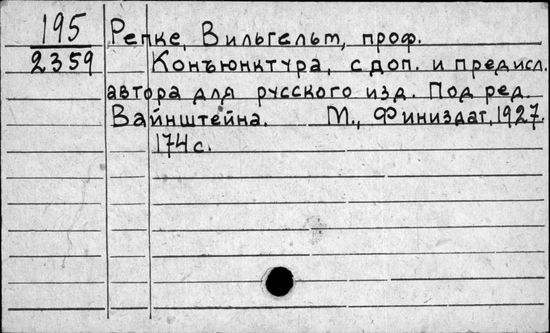 195
2359
Репке, Вильгельм, проф.
Конъюнктура, с доп. и предисл.
автора для русского изд. Под ред.
Вайнштейна. М., Финиздат, 1927.
174 с.